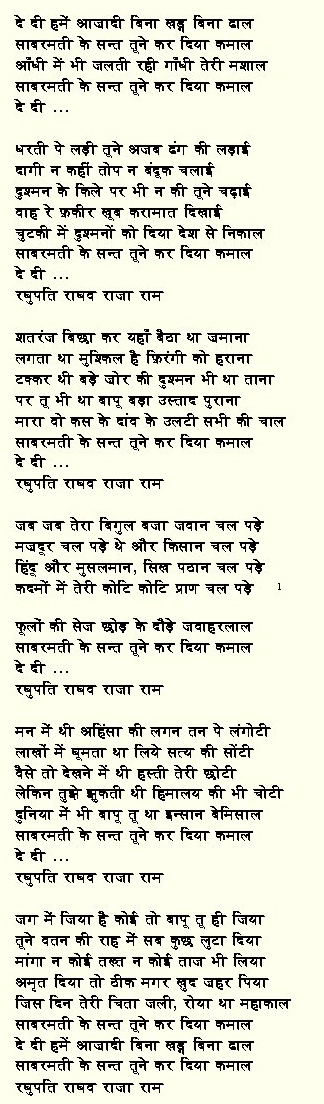 दे दी हमें आज़ादी बिना खड्ग बिना ढाल
साबरमती के सन्त तूने कर दिया कमाल
आँधी में भी जलती रही गाँधी तेरी मशाल
साबरमती के सन्त तूने कर दिया कमाल
दे दी ...
धरती पे लड़ी तूने अजब ढंग की लड़ाई
दागी न कहीं तोप न बंदूक चलाई
दुश्मन के किले पर भी न की तूने चढ़ाई
वाह रे फ़कीर खूब करामात दिखाई
चुटकी में दुश्मनों को दिया देश से निकाल
साबरमती के सन्त तूने कर दिया कमाल
दे दी ...
रघुपति राघव राजा राम
शतरंज बिछा कर यहाँ बैठा था ज़माना
लगता था मुश्किल है फ़िरंगी को हराना
टक्कर थी बड़े ज़ोर की दुश्मन भी था ताना
पर तू भी था बापू बड़ा उस्ताद पुराना
मारा वो कस के दांव के उलटी सभी की चाल
साबरमती के सन्त तूने कर दिया कमाल
दे दी ...
रघुपति राघव राजा राम
जब जब तेरा बिगुल बजा जवान चल पड़े
मज़दूर चल पड़े थे और किसान चल पड़े
हिंदू और मुसलमान, सिख पठान चल पड़े
कदमों में तेरी कोटि कोटि प्राण चल पड़े 1
फूलों की सेज छोड़ के दौड़े जवाहरलाल
साबरमती के सन्त तूने कर दिया कमाल
दे दी ...
रघुपति राघव राजा राम
मन में थी अहिंसा की लगन तन पे लंगोटी
लाखों में घूमता था लिये सत्य की सोंटी
वैसे तो देखने में थी हस्ती तेरी छोटी
लेकिन तुझे झुकती थी हिमालय की भी चोटी
दुनिया में भी बापू तू था इन्सान बेमिसाल
साबरमती के सन्त तूने कर दिया कमाल
दे दी ...
रघुपति राघव राजा राम
जग में जिया है कोई तो बापू तू ही जिया
तूने वतन की राह में सब कुछ लुटा दिया
मांगा न कोई तख्त न कोई ताज भी लिया
अमृत दिया तो ठीक मगर खुद ज़हर पिया
जिस दिन तेरी चिता जली, रोया था महाकाल
साबरमती के सन्त तूने कर दिया कमाल
दे दी हमें आज़ादी बिना खड्ग बिना ढाल
साबरमती के सन्त तूने कर दिया कमाल
रघुपति राघव राजा राम